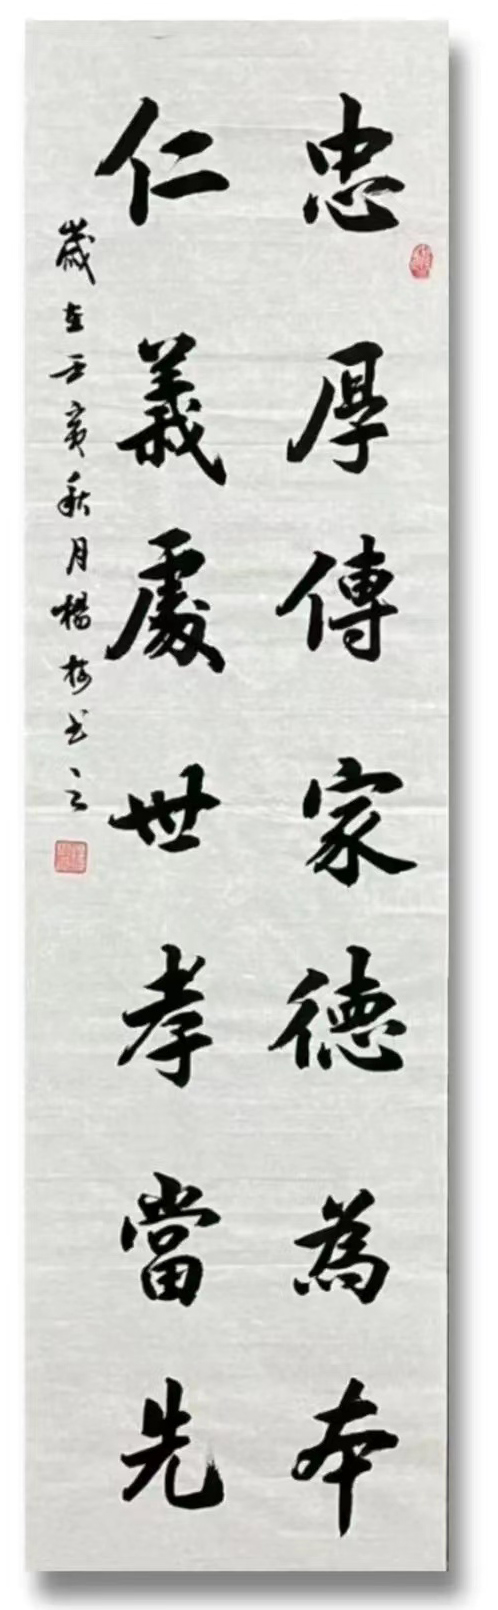 忠厚傳家德為本
仁義處世孝當先
歲在壬寅秋月楊梅书之